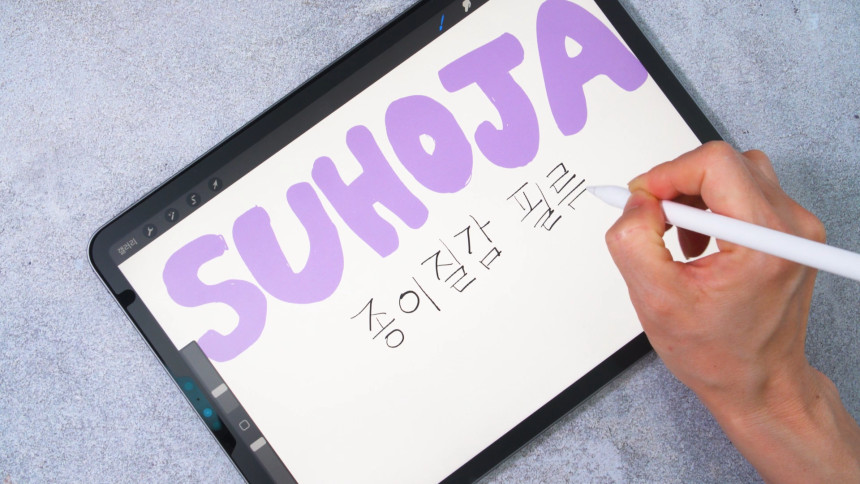 갤러리
SUHOJA
종이질감 필름